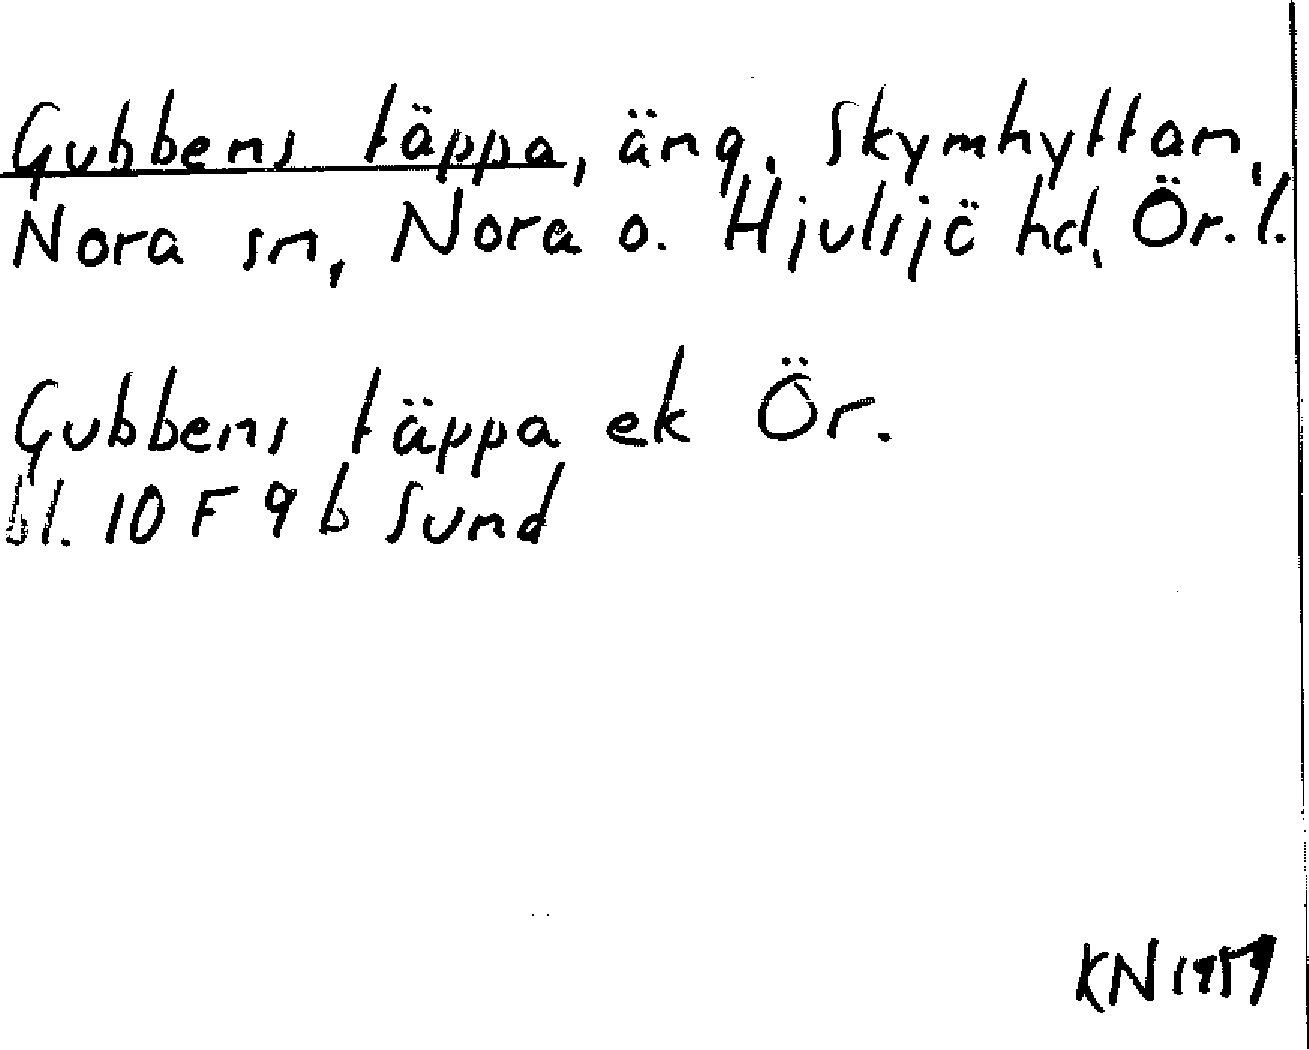 Gubbens täppa, äng, Skymhyttan,
Nora sn, Nora o. Hjulsjö hd, Ör. l.
Gubbens täppa ek Ör.
bl. 10 F 9 b Sund
KN 1959